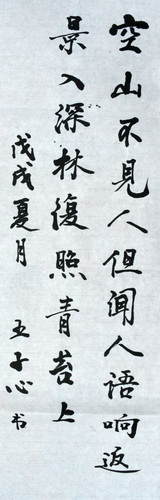 空山不見人但闻人语响返
景入深林復照青苔上
戊戌夏月 王子心书